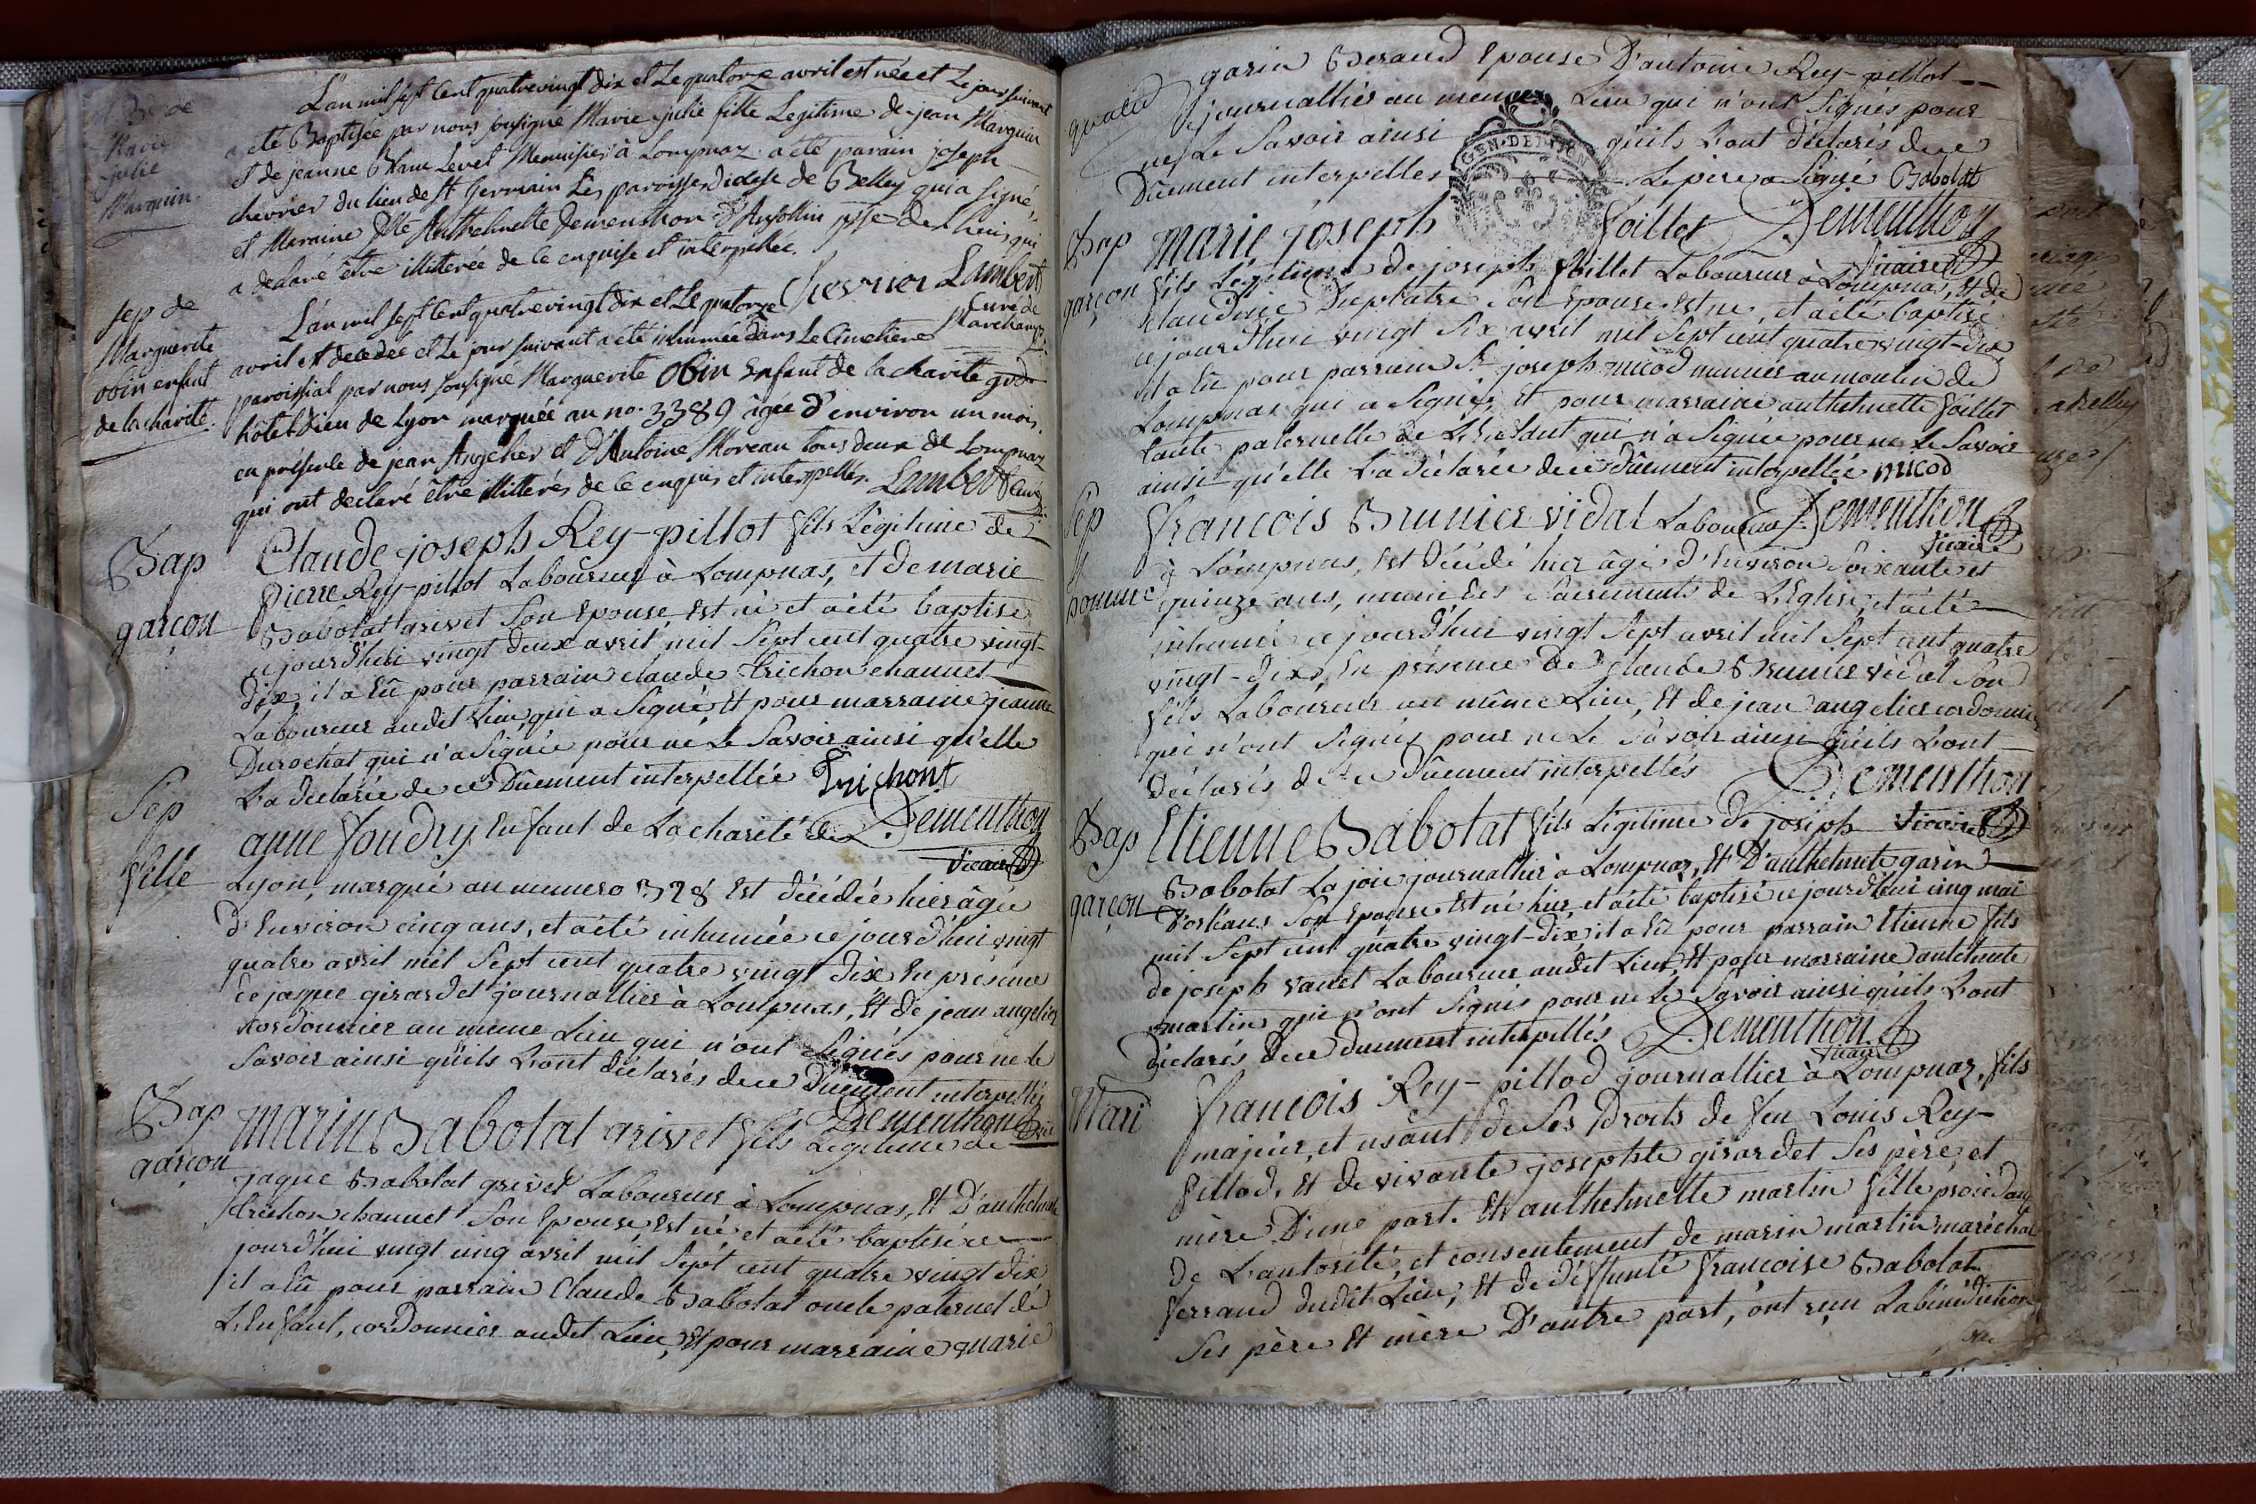 Be de
Marie
julie
Marguin.
L'an mil sept Cent quatrevingt dix et Le quatorze avril est née et Le jour suivant
a été Baptisée par nous soussigné Marie julie fille Legitime de jean Marguin
et de jeanne Menuisier à Lompnaz a été parain joseph
chevrier du lieu de St Germain Les paroisses Diocese de Belley qui a signé,
et Maraine Dlle Anthelmette Dementhon D'
a declaré être illitterée de ce enquise et interpellée.
Chevrier Lambert
Curé de
Marchamp
sep de
Marguerite
obin enfant
de la charité.
L'an mil sept Cent quatrevingt dix et Le quatorze
avril est decedée et Le jour suivant a été inhumée dans Le Cimetiere
paroissial par nous soussigné Marguerite Obin Enfant de la charité grd
hôtel-dieu de Lyon marquée au no. 3389 âgée d'environ un mois.
en présence de jean Angelier et d'Antoine Moreau tous deux de Lompnaz
qui ont declaré être illitterés de ce enquis et interpellés. Lambert Curé
Bap
garçon
Claude joseph Rey-pillot fils Légitime de
Pierre Rey-pillot Laboureur à Lompnas, et de marie
Babolat grivet son Epouse, Est né et a été baptisé
ce jourd'hui vingt deux avril mil sept cent quatre vingt-
dix, il a Eû pour parrain claude trichon chaunet
Laboureur audit Lieu qui a signé, Et pour marraine jeanne
Durochat qui n'a signée pour ne Le Savoir ainsi qu'elle
L'a déclarée de ce Dûement interpellée Trichont
Dementhon
vicaire
Sep
fille
anne foudry, Enfant de La charité de
Lyon, marqué au numero 328 Est décédée hier âgée
d'Environ cinq ans, et a été inhumée ce jourd'hui vingt
quatre avril mil Sept cent quatre vingt dix En présence
de jaque girardet journallier à Lompnas, Et de jean angelier
cordonnier au meme Lieu qui n'ont Signés pour ne le
Savoir ainsi qu'ils L'ont déclarés de ce Dûement interpellés
Dementhon vic
Bap
garçon
marin Babolat grivet fils Légitime de
jaque Babolat grivet Laboureur à Lompnas, Et D'anthelmette
trichon chaunet son Epouse, Est né et a été baptisé ce
jourd'hui vingt cinq avril mil Sept cent quatre vingt dix
il a Eû pour parrain Claude Babolat oncle paternel de
L'Enfant, cordonnier audit Lieu, Et pour marraine marie
garin Beraud Epouse D'antoine Rey-pillot
journallier au meme Lieu qui n'ont Signés pour
ne Le Savoir ainsi qu'ils L'ont déclarés de ce
Dûement interpellés Le père a Signé Babolat
GEN. DE DIJON
Dementhon
vicaire
Bap
garçon
Marie joseph foillet
fils Légitime de joseph foillet Laboureur à Lompnas, Et de
claudine son Epouse Est né, et a été baptisé
ce jourd'hui vingt six avril mil Sept cent quatre vingt-dix
il a Eû pour parrain Sr joseph nicod munier au moulin de
Lompnas qui a Signé, Et pour marraine anthelmette foillet
tante paternelle de L'Enfant qui n'a Signée pour ne Le Savoir
ainsi qu'elle L'a déclarée de ce dûement interpellée nicod
Dementhon
vicaire
Sep
homme
francois Brunier vidal Laboureur
à Lompnas, Est Décédé hier âgé d'Environ Soixante et
quinze ans, muni des Sacrements de L'Eglise, et a été
inhumé ce jourd'hui vingt Sept avril mil Sept cent quatre
vingt-dix, En présence de claude Brunier vidal Son
fils Laboureur au même Lieu, Et de jean angelier cordonnier
qui n'ont Signés pour ne Le Savoir ainsi qu'ils L'ont
déclarés de ce dûement interpellés Dementhon
vicaire
Bap
garçon
Etienne Babolat fils Légitime de joseph
Babolat La joie journallier à Lompnaz, Et D'anthelmette garin
D'orléans Son Epouse Est né hier et a été baptisé ce jourd'hui cinq mai
mil Sept cent quatre vingt-dix il a Eû pour parrain Etienne fils
de joseph vanet Laboureur audit Lieu, Et pour marraine antelmete
martin qui n'ont Signés pour ne Le Savoir ainsi qu'ils L'ont
déclarés de ce duement interpellés Dementhon
vicaire
Mari
francois Rey-pillod journallier à Lompnaz, fils
majeur, et usant de Ses Droits de feu Louis Rey-
Pillod, Et de vivante josephte girardet Ses père et
mère D'une part. Et anthelmette martin fille
de L'autorité, et consentement de marin martin maréchal
ferrand dudit Lieu, Et de déffunte francoise Babolat
Ses père Et mère D'autre part, ont reçu La bénédiction